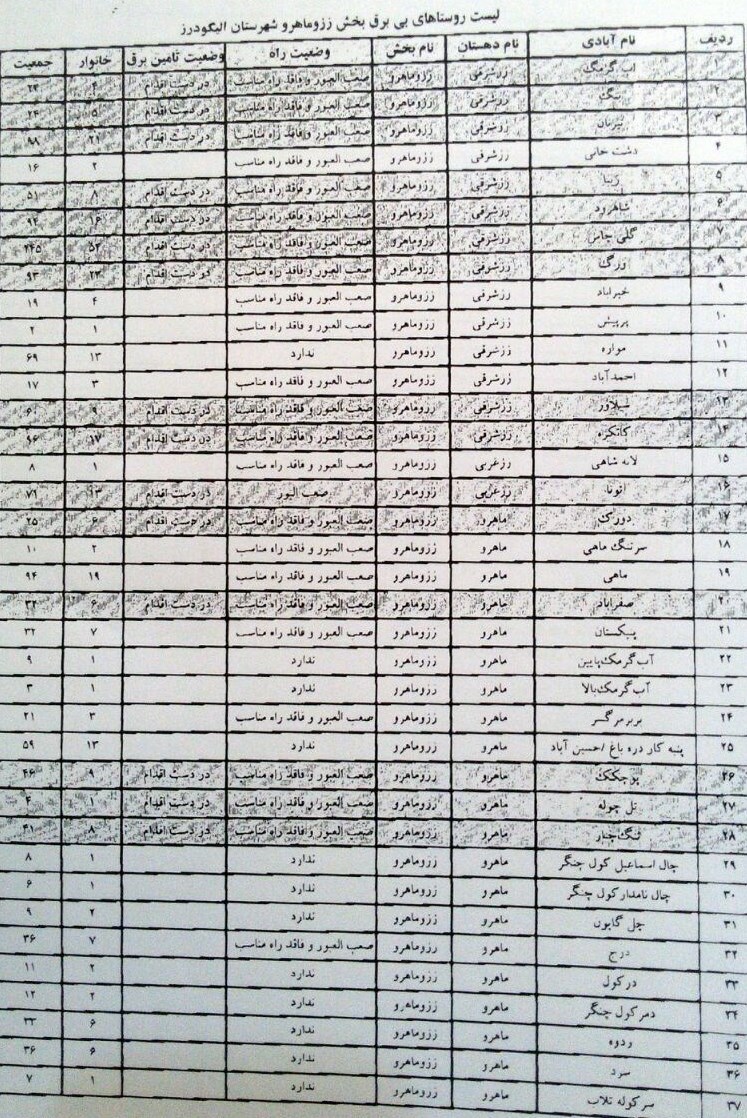 لیست روستاهای بی برق بخش ززوماهرو شهرستان الیگودرز
ردیف نام آبادی نام دهستان نام بخش وضعیت راه وضعیت تامین برق خانوار جمعیت
۱ اب گرمک ززشرقی ززوماهرو صعب العبور و فاقد راه مناسب در دست اقدام ۴ ۲۴
۲ ززشرقی ززوماهرو صعب العبور و فاقد راه مناسب در دست اقدام ۵ ۲۴
۳ ززشرقی ززوماهرو صعب العبور و فاقد راه مناسب در دست اقدام ۲۱ ۹۸
۴ دشت خانی ززشرقی ززوماهرو صعب العبور و فاقد راه مناسب ۲ ۱۶
۵ ززشرقی ززوماهرو صعب العبور و فاقد راه مناسب در دست اقدام ۸ ۵۱
۶ شاهرود ززشرقی ززوماهرو صعب العبور و فاقد راه مناسب در دست اقدام ۱۶ ۹۴
۷ گلی چاس ززشرقی ززوماهرو صعب العبور و فاقد راه مناسب در دست اقدام ۵۲ ۲۴۵
۸ ززشرقی ززوماهرو صعب العبور و فاقد راه مناسب در دست اقدام ۲۳ ۹۳
۹ خیراباد ززشرقی ززوماهرو صعب العبور و فاقد راه مناسب ۴ ۱۹
۱۰ پرپیش ززشرقی ززوماهرو صعب العبور و فاقد راه مناسب ۱ ۲
۱۱ مواره ززشرقی ززوماهرو ندارد ۱۳ ۶۹
۱۲ احمدآباد ززشرقی ززوماهرو صعب العبور و فاقد راه مناسب ۳ ۱۷
۱۳ سیلاور ززشرقی ززوماهرو صعب العبور و فاقد راه مناسب در دست اقدام ۹
۱۴ کاتکزه ززشرقی ززوماهرو صعب العبور و فاقد راه مناسب در دست اقدام ۱۷ ۹۶
۱۵ لانه شاهی ززغربی ززوماهرو صعب العبور و فاقد راه مناسب ۱ ۸
۱۶ ززغربی ززوماهرو صعب البور در دست اقدام ۱۳ ۷۶
۱۷ دورک ماهرو ززوماهرو صعب العبور و فاقد راه مناسب در دست اقدام ۶ ۲۵
۱۸ سرتنگ ماهی ماهرو ززوماهرو صعب العبور و فاقد راه مناسب ۲ ۱۰
۱۹ ماهی ماهرو ززوماهرو صعب العبور و فاقد راه مناسب ۱۹ ۹۴
۲۰ صفراباد ماهرو ززوماهرو صعب العبور و فاقد راه مناسب در دست اقدام ۶ ۳۲
۲۱ پنبکستان ماهرو ززوماهرو صعب العبور و فاقد راه مناسب ۷ ۳۲
۲۲ آب گرمک پایین ماهرو ززوماهرو ندارد ۱ ۹
۲۳ آب گرمک بالا ماهرو ززوماهرو ندارد ۱ ۳
۲۴ بربرمرگسر ماهرو ززوماهرو صعب العبور و فاقد راه مناسب ۳ ۲۱
۲۵ پنبه کار دره باغ /حسین آباد ماهرو ززوماهرو ندارد ۱۳ ۵۹
۲۶ پوچکک ماهرو ززوماهرو صعب العبور و فاقد راه مناسب در دست اقدام ۹ ۴۶
۲۷ تل چوله ماهرو ززوماهرو صعب العبور و فاقد راه مناسب در دست اقدام ۱ ۴
۲۸ تنگ چنار ماهرو ززوماهرو صعب العبور و فاقد راه مناسب در دست اقدام ۸ ۳۱
۲۹ چال اسماعیل کول چنگر ماهرو ززوماهرو ندارد ۱ ۸
۳۰ چال نامدار کول چنگر ماهرو ززوماهرو ندارد ۱ ۶
۳۱ چل گاپون ماهرو ززوماهرو ندارد ۲ ۹
۳۲ درج ماهرو ززوماهرو صعب العبور و فاقد راه مناسب ۷ ۳۶
۳۳ درکول ماهرو ززوماهرو ندارد ۲ ۱۱
۳۴ دمرکول چنگر ماهرو ززوماهرو ندارد ۲ ۱۲
۳۵ ردوه ماهرو ززوماهرو ندارد ۶ ۳۳
۳۶ سرد ماهرو ززوماهرو ندارد ۶ ۳۶
۳۷ سرکوله تلاب ماهرو ززوماهرو ندارد ۱ ۷